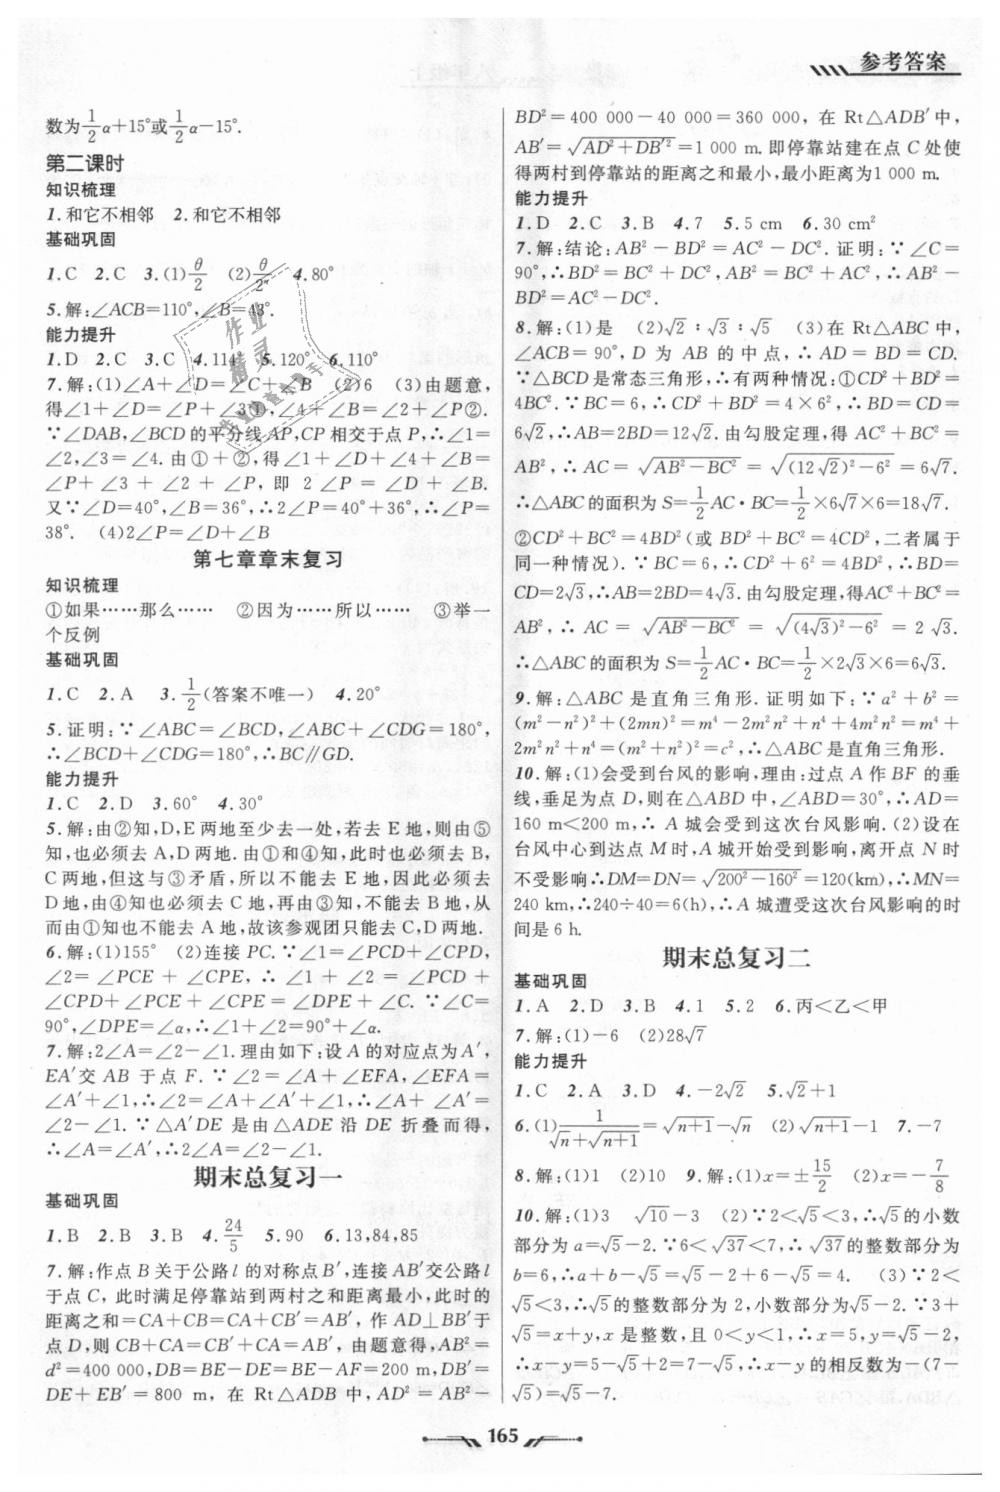 参考答案
数为1/2α+15°或1/2α−15°.
第二课时
知识梳理
1.和它不相邻 2.和它不相邻
基础巩固
1.C 2.C 3.(1)θ/2 (2)θ/2ⁿ 4.80°
5.解:∠ACB=110°,∠B=43°.
能力提升
1.D 2.C 3.C 4.114° 5.120° 6.110°
7.解:(1)∠A+∠D=∠C+∠B (2)6 (3)由题意,
得∠1+∠D=∠P+∠3①,∠4+∠B=∠2+∠P②.
∵∠DAB,∠BCD的平分线AP,CP相交于点P,∴∠1=
∠2,∠3=∠4.由①+②,得∠1+∠D+∠4+∠B=
∠P+∠3+∠2+∠P,即2∠P=∠D+∠B.
又∵∠D=40°,∠B=36°,∴2∠P=40°+36°,∴∠P=
38°. (4)2∠P=∠D+∠B
第七章章末复习
知识梳理
①如果……那么…… ②因为……所以…… ③举一
个反例
基础巩固
1.C 2.A 3.1/2(答案不唯一) 4.20°
5.证明:∵∠ABC=∠BCD,∠ABC+∠CDG=180°,
∴∠BCD+∠CDG=180°,∴BC∥GD.
能力提升
1.C 2.D 3.60° 4.30°
5.解:由②知,D,E两地至少去一处,若去E地,则由⑤
知,也必须去A,D两地.由①和④知,此时也必须去B,
C两地,但这与③矛盾,所以不能去E地,因此必须去
D地,由④知也必须去C地,再由③知,不能去B地,从
而由①知也不能去A地,故该参观团只能去C,D两地.
6.解:(1)155° (2)连接PC.∵∠1=∠PCD+∠CPD,
∠2=∠PCE+∠CPE,∴∠1+∠2=∠PCD+
∠CPD+∠PCE+∠CPE=∠DPE+∠C.∵∠C=
90°,∠DPE=∠α,∴∠1+∠2=90°+∠α.
7.解:2∠A=∠2−∠1.理由如下:设A的对应点为A′,
EA′交AB于点F.∵∠2=∠A+∠EFA,∠EFA=
∠A′+∠1,∴∠2=∠A+∠A′+∠1,∴∠A+∠A′=
∠2−∠1.∵△A′DE是由△ADE沿DE折叠而得,
∴∠A=∠A′,∴2∠A=∠2−∠1.
期末总复习一
基础巩固
1.B 2.B 3.B 4.24/5 5.90 6.13,84,85
7.解:作点B关于公路l的对称点B′,连接AB′交公路l
于点C,此时满足停靠站到两村之和距离最小,此时的
距离之和=CA+CB=CA+CB′=AB′,作AD⊥BB′于
点D,则CB+CA=CB′+CA=AB′,由题意得,AB²=
d²=400 000,DB=BE−DE=BE−AF=200 m,DB′=
DE+EB′=800 m,在Rt△ADB中,AD²=AB²−
BD²=400 000−40 000=360 000,在Rt△ADB′中,
AB′=√(AD²+DB′²)=1 000 m.即停靠站建在点C处使
得两村到停靠站的距离之和最小,最小距离为1 000 m.
能力提升
1.D 2.C 3.B 4.7 5.5 cm 6.30 cm²
7.解:结论:AB²−BD²=AC²−DC².证明:∵∠C=
90°,∴BD²=BC²+DC²,AB²=BC²+AC²,∴AB²−
BD²=AC²−DC².
8.解:(1)是 (2)√2∶√3∶√5 (3)在Rt△ABC中,
∠ACB=90°,D为AB的中点,∴AD=BD=CD.
∵△BCD是常态三角形,∴有两种情况:①CD²+BD²=
4BC².∵BC=6,∴CD²+BD²=4×6²,∴BD=CD=
6√2,∴AB=2BD=12√2.由勾股定理,得AC²+BC²=
AB²,∴AC=√(AB²−BC²)=√((12√2)²−6²)=6√7.
∴△ABC的面积为S=1/2AC·BC=1/2×6√7×6=18√7.
②CD²+BC²=4BD²(或BD²+BC²=4CD²,二者属于
同一种情况).∵BC=6,∴CD²+6²=4BD²,∴BD=
CD=2√3,∴AB=2BD=4√3.由勾股定理,得AC²+BC²=
AB²,∴AC=√(AB²−BC²)=√((4√3)²−6²)=2√3.
∴△ABC的面积为S=1/2AC·BC=1/2×2√3×6=6√3.
9.解:△ABC是直角三角形.证明如下:∵a²+b²=
(m²−n²)²+(2mn)²=m⁴−2m²n²+n⁴+4m²n²=m⁴+
2m²n²+n⁴=(m²+n²)²=c²,∴△ABC是直角三角形.
10.解:(1)会受到台风的影响,理由:过点A作BF的垂
线,垂足为点D,则在△ABD中,∠ABD=30°,∴AD=
160 m<200 m,∴A城会受到这次台风影响.(2)设在
台风中心到达点M时,A城开始受到影响,离开点N时
不受影响∴DM=DN=√(200²−160²)=120(km),∴MN=
240 km,∴240÷40=6(h),∴A城遭受这次台风影响的时
间是6 h.
期末总复习二
基础巩固
1.A 2.D 3.B 4.1 5.2 6.丙<乙<甲
7.解:(1)−6 (2)28√7
能力提升
1.C 2.A 3.D 4.−2√2 5.√2+1
6.(1)1/(√n+√(n+1))=√(n+1)−√n (2)√(n+1)−1 7.−7
8.解:(1)1 (2)10 9.解:(1)x=±15/2 (2)x=−7/8
10.解:(1)3 √10−3 (2)∵2<√5<3,∴√5的小数
部分为a=√5−2.∵6<√37<7,∴√37的整数部分为
b=6,∴a+b−√5=√5−2+6−√5=4. (3)∵2<
√5<3,∴√5的整数部分为2,小数部分为√5−2.∵3+
√5=x+y,x是整数,且0<y<1,∴x=5,y=√5−2,
∴x−y=5−√5+2=7−√5,∴x−y的相反数为−(7−
√5)=√5−7.
165